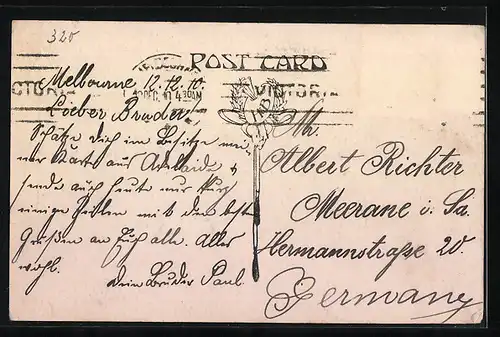 320
POST CARD
VICTORIA
Melbourne 12.12.10.
Lieber Bruder
Schätze dich im Besitze mei-
ner Karte aus Adelaide &
sende auch heute nur kurz
einige Zeilen mit den best
Grüßen an Euch alle. Alles
wohl.
Dein Bruder Paul
Mr.
Albert Richter
Meerane i. Sa.
Hermannstraße 20.
Germany